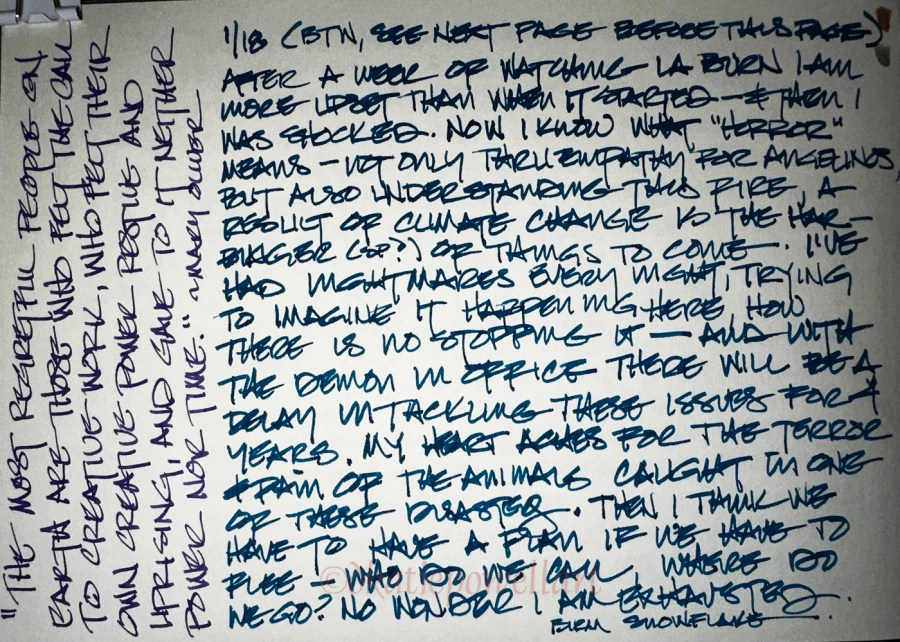 1/18 (BTW, SEE NEXT PAGE BEFORE THIS PAGE)
AFTER A WEEK OF WATCHING LA BURN I AM
MORE UPSET THAN WHEN IT STARTED — & THEN I
WAS SHOCKED. NOW I KNOW WHAT "HORROR"
MEANS — NOT ONLY THRU EMPATHY FOR ANGELINOS,
BUT ALSO UNDERSTANDING THIS FIRE, A
RESULT OF CLIMATE CHANGE IS THE HAR-
BINGER (SP?) OF THINGS TO COME. I'VE
HAD NIGHTMAIRES EVERY NIGHT, TRYING
TO IMAGINE IT HAPPENING HERE HOW
THERE IS NO STOPPING IT — AND WITH
THE DEMON IN OFFICE THERE WILL BE A
DELAY IN TACKLING THESE ISSUES FOR 4
YEARS. MY HEART ACHES FOR THE TERROR
& PAIN OF THE ANIMALS CAUGHT IN ONE
OF THESE DISASTERS. THEN I THINK WE
HAVE TO HAVE A PLAN IF WE HAVE TO
FLEE — WHO DO WE CALL, WHERE DO
WE GO? NO WONDER I AM EXHAUSTED.
SNOWFLAKE
"THE MOST REGRETFUL PEOPLE ON
EARTH ARE THOSE WHO FELT THE CALL
TO CREATIVE WORK, WHO FELT THEIR
OWN CREATIVE POWER RESTIVE AND
UPRISING, AND GAVE TO IT NEITHER
POWER NOR TIME." ~MARY OLIVER